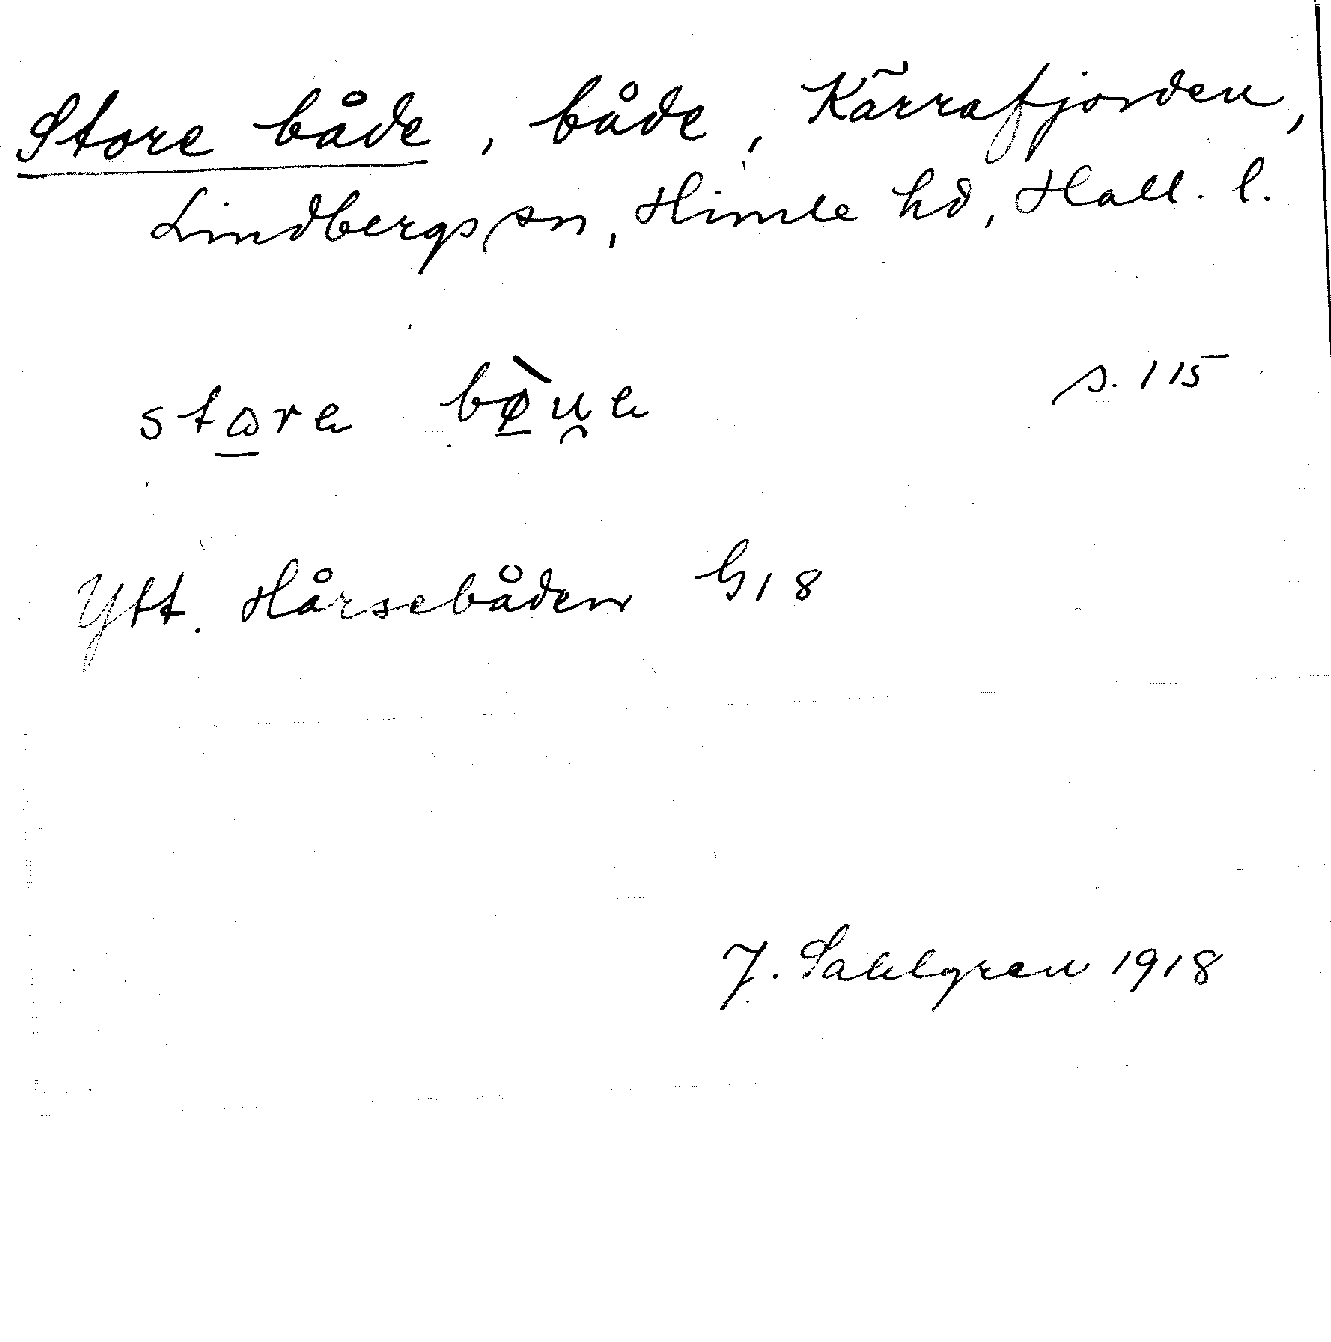 Store både, både, Kärrafjorden,
Lindbergs sn, Himle hd, Hall. l.
store s. 115
Ytt. Hårsebåden G 18
J. Sahlgren 1918